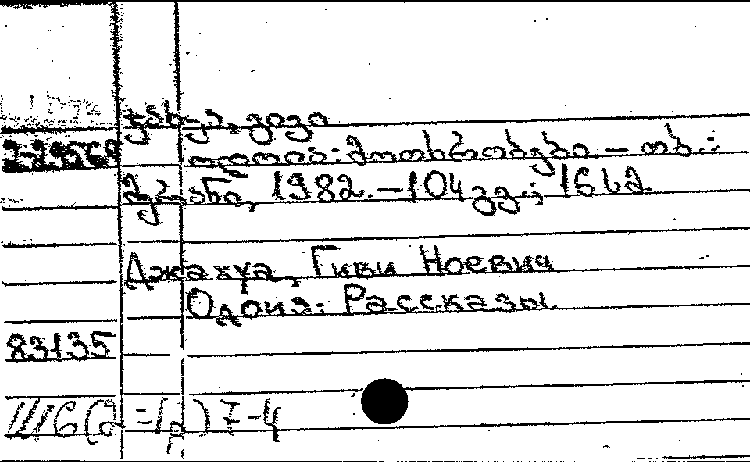 ჯახუა, გივი
ოდოია: მოთხრობები – თბ.:
მერანი, 1982. – 104 გვ.; 16 სმ.
Джахуа, Гиви Ноевич
Одоия: Рассказы.
83135